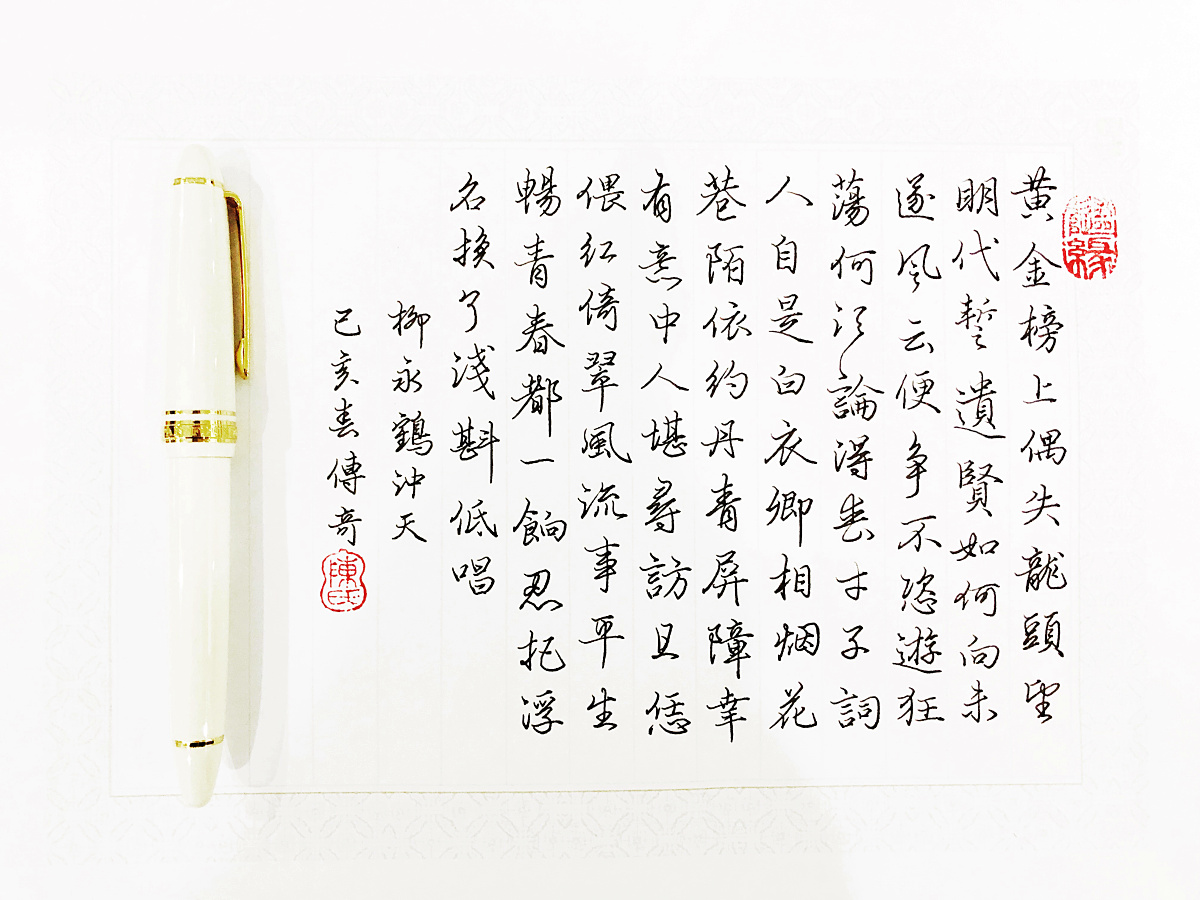 黄金榜上偶失龍頭望
明代暫遺賢如何向未
遂风云便争不恣遊狂
蕩何须論得丧才子詞
人自是白衣卿相烟花
巷陌依约丹青屏障幸
有意中人堪尋訪且恁
偎红倚翠風流事平生
暢青春都一餉忍把浮
名换了淺斟低唱
柳永鶴冲天
己亥春傳奇
陳印